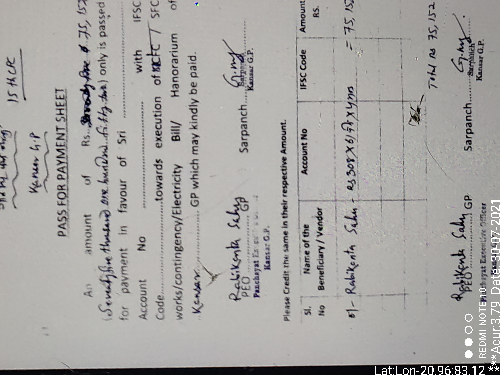 15th CFC
Kansar G.P
PASS FOR PAYMENT SHEET
An amount of Rs. 75,152
(Seventy five thousand one hundred fifty two) only is passed
for payment in favour of Sri
Account No with IFSC
Code towards execution of CFC / SFC
works/contingency/Electricity Bill/ Hanorarium of
Kansar GP which may kindly be paid.
Rabikanta Sahu
PEO GP Sarpanch
Panchayat Executive Sarpanch
Kansar G.P. Kansar G.P.
Please Credit the same in their respective Amount.
Sl. No Name of the Beneficiary / Vendor Account No IFSC Code Amount RS.
01- Rabikanta Sahu - = 75,152
Total Rs 75,152
Rabikanta Sahu
PEO GP Sarpanch
Panchayat Executive Officer Sarpanch
Kansar G.P. Kansar G.P.
REDMI NOTE 10
Lat:Lon-20.96:83.12
***Acur:3.79 Date:30-07-2021